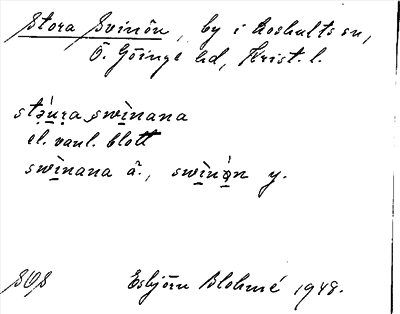 Stora Svinön, by i Loshults sn,
Ö. Göinge hd, Krist. l.
stə̀u̠ra swìnana
el. vanl. blott
swìnana ä., swìnǫ̀n y.
SOS Esbjörn Blohmé 1948.